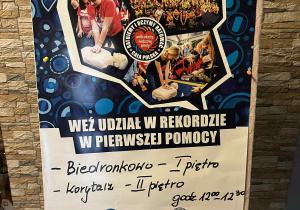 WEŹ UDZIAŁ W REKORDZIE
W PIERWSZEJ POMOCY
- Biedronkowo - I piętro
- Korytarz - II piętro
godz 12⁰⁰-12³⁰